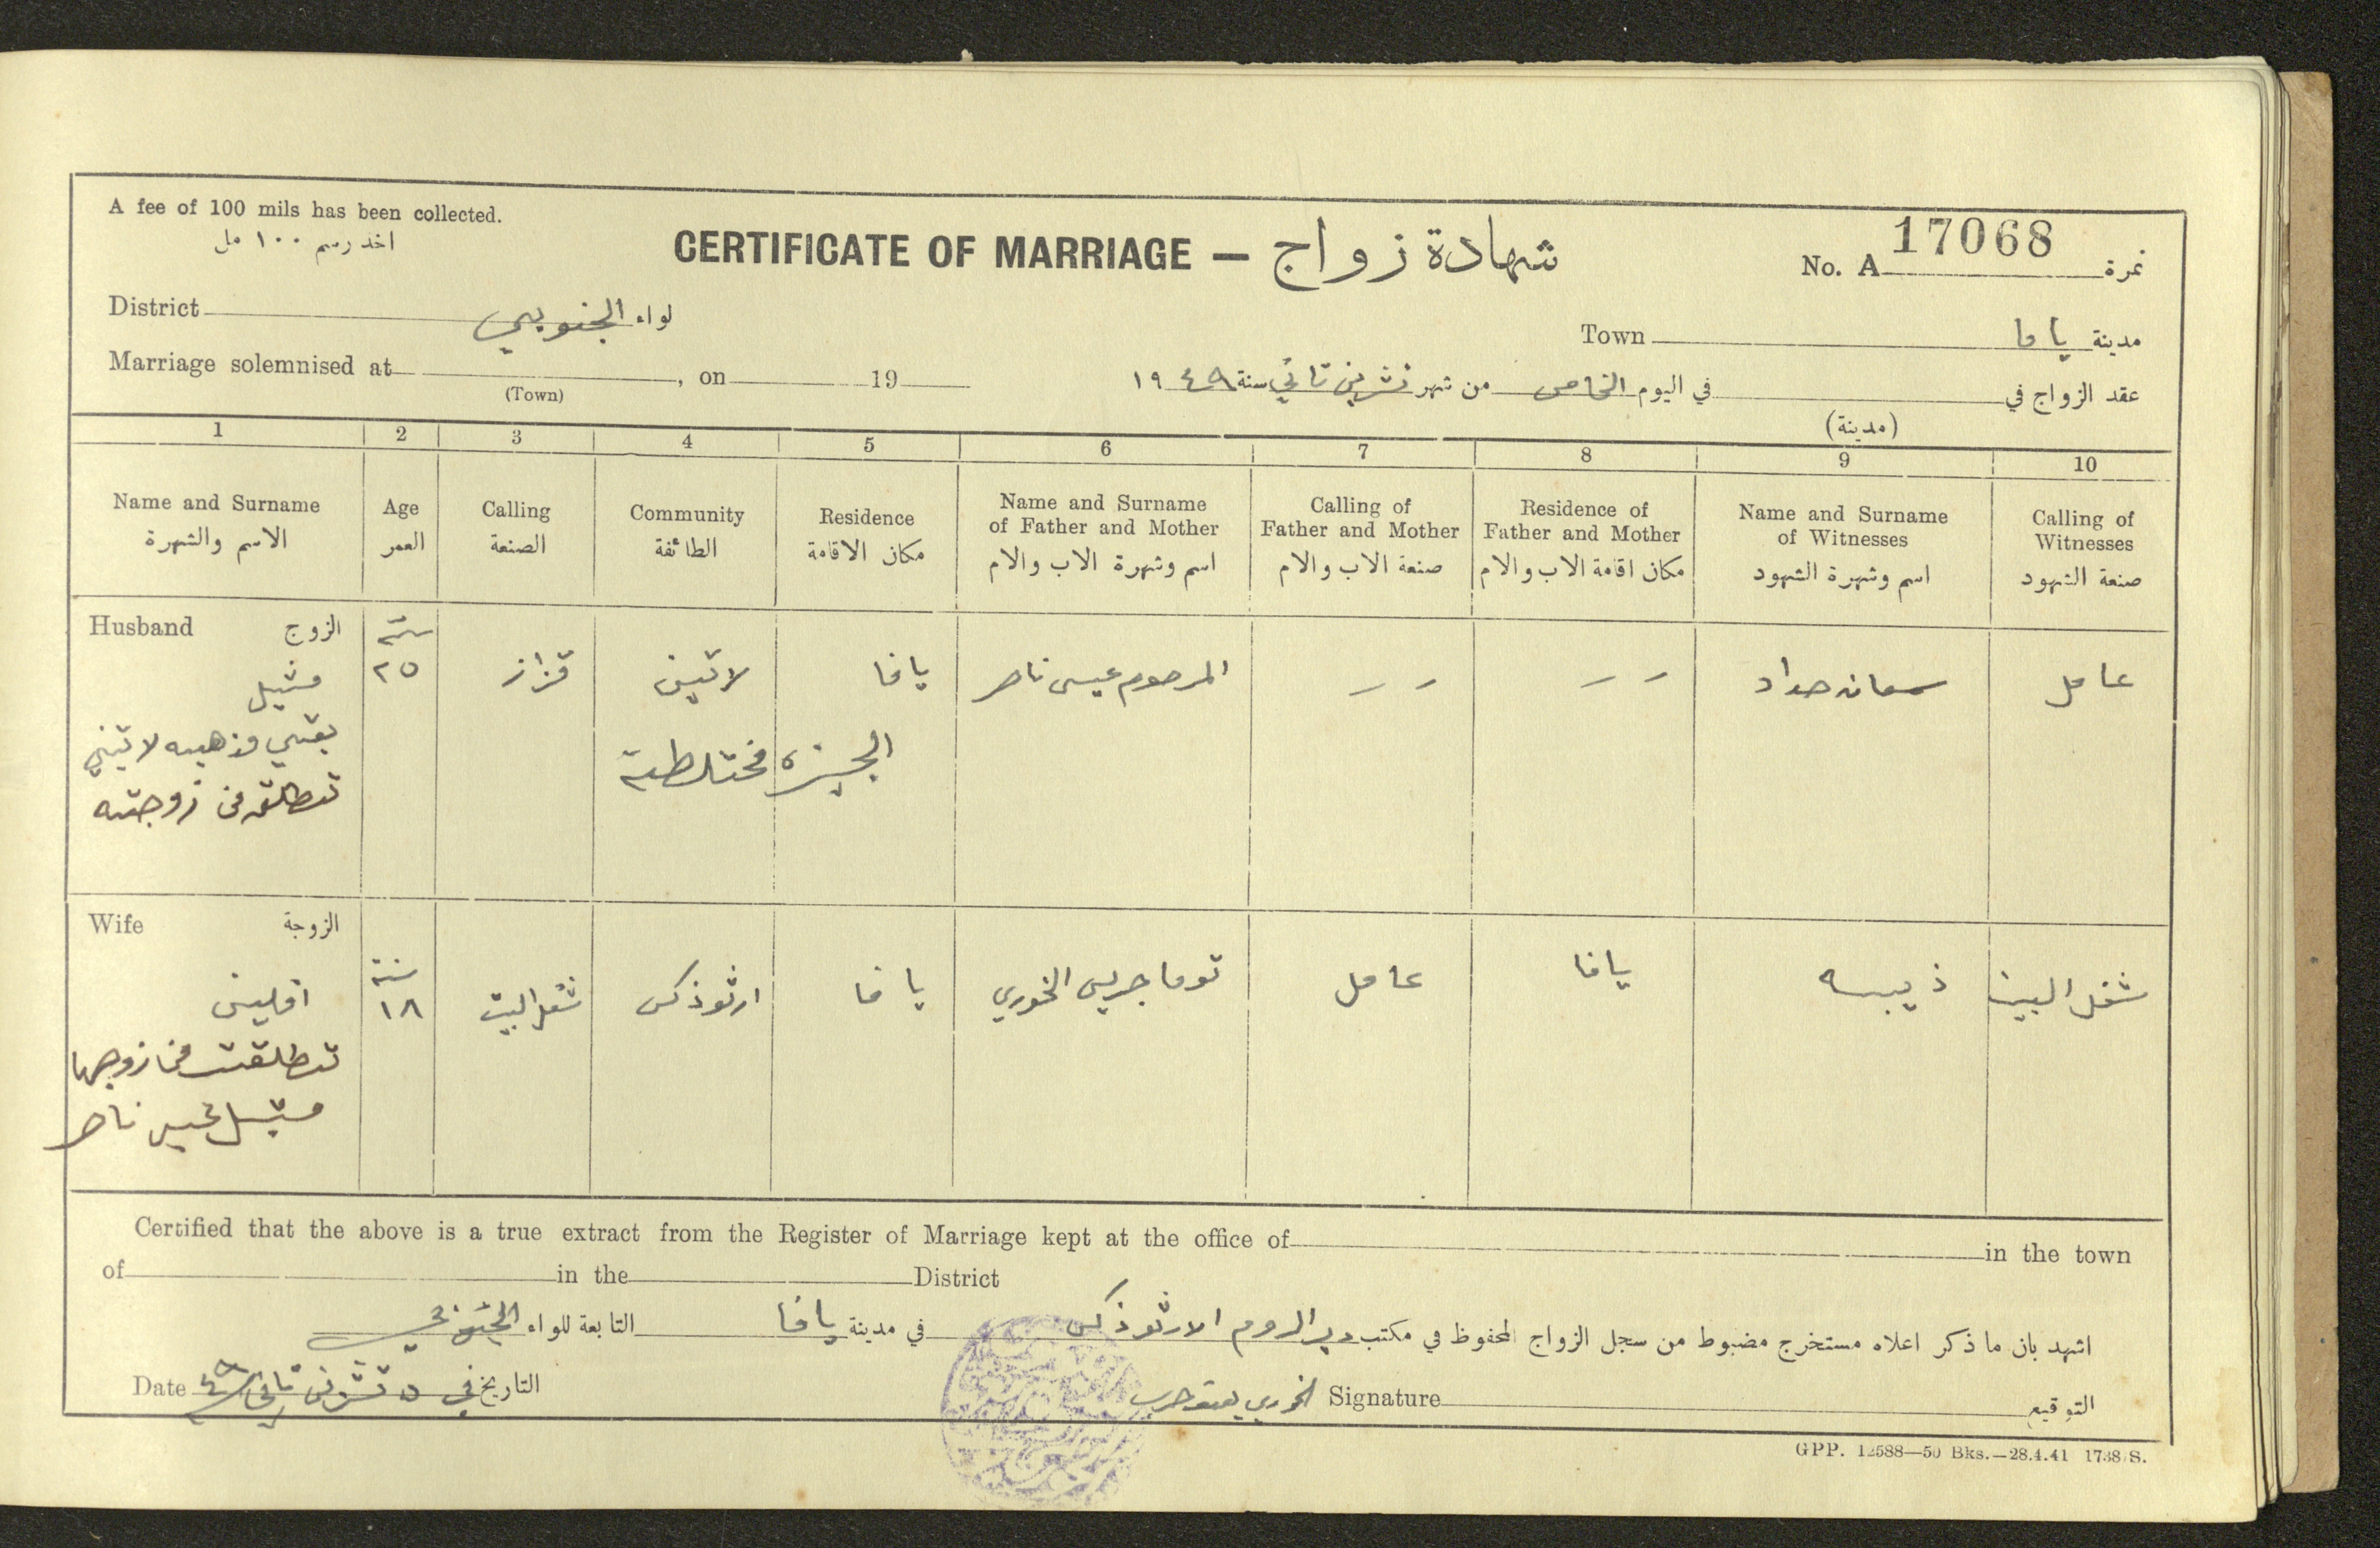 A fee of 100 mils has been collected.
اخذ رسم ١٠٠ مل
CERTIFICATE OF MARRIAGE — شهادة زواج
No. A 17068 نمرة
District لواء الجنوبي
Town مدينة يافا
Marriage solemnised at , on 19
(Town)
عقد الزواج في في اليوم الخامس من شهر تشرين تاني سنة ١٩٤٨
(مدينة)
1 2 3 4 5 6 7 8 9 10
Name and Surname الاسم والشهرة
Age العمر
Calling الصنعة
Community الطائفة
Residence مكان الاقامة
Name and Surname of Father and Mother اسم وشهرة الاب والام
Calling of Father and Mother صنعة الاب والام
Residence of Father and Mother مكان اقامة الاب والام
Name and Surname of Witnesses اسم وشهرة الشهود
Calling of Witnesses صنعة الشهود
Husband الزوج
مشيل
بقي مذهبه لاتيني
تطلق من زوجته
سنة
٢٥
قزاز
لاتيني
يافا
المرحوم عيسى ناصر
— —
— —
سمعان حداد
عامل
الجيزه مختلطة
Wife الزوجة
افلين
تطلقت من زوجها
مشيل عيسى ناصر
سنة
١٨
شغل البيت
ارثوذكس
يافا
توما جريس الخوري
عامل
يافا
ذيبه
شغل البيت
Certified that the above is a true extract from the Register of Marriage kept at the office of in the town
of in the District
اشهد بان ما ذكر اعلاه مستخرج مضبوط من سجل الزواج المحفوظ في مكتب دير الروم الارثوذكس في مدينة يافا التابعة للواء الجنوبي
التوقيع Signature الخوري
التاريخ في ٥ تشرين تاني ٤٨ Date
GPP. 12588—50 Bks.—28.4.41 1738/S.